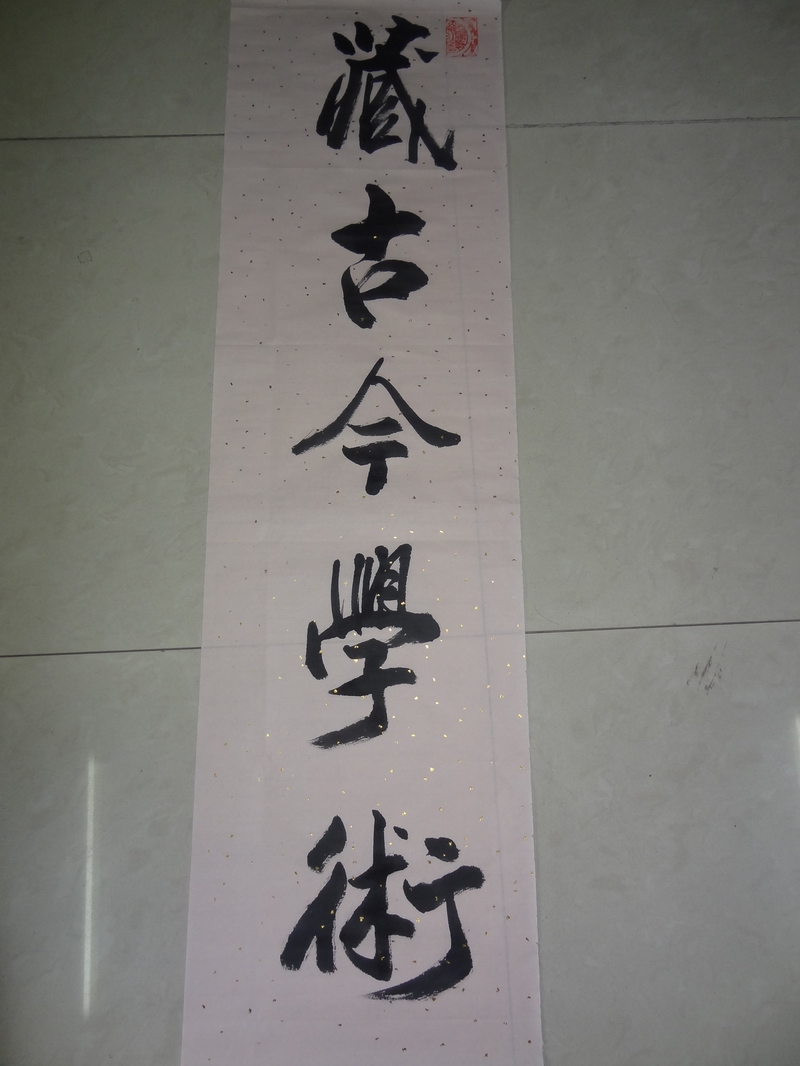 藏古今學術